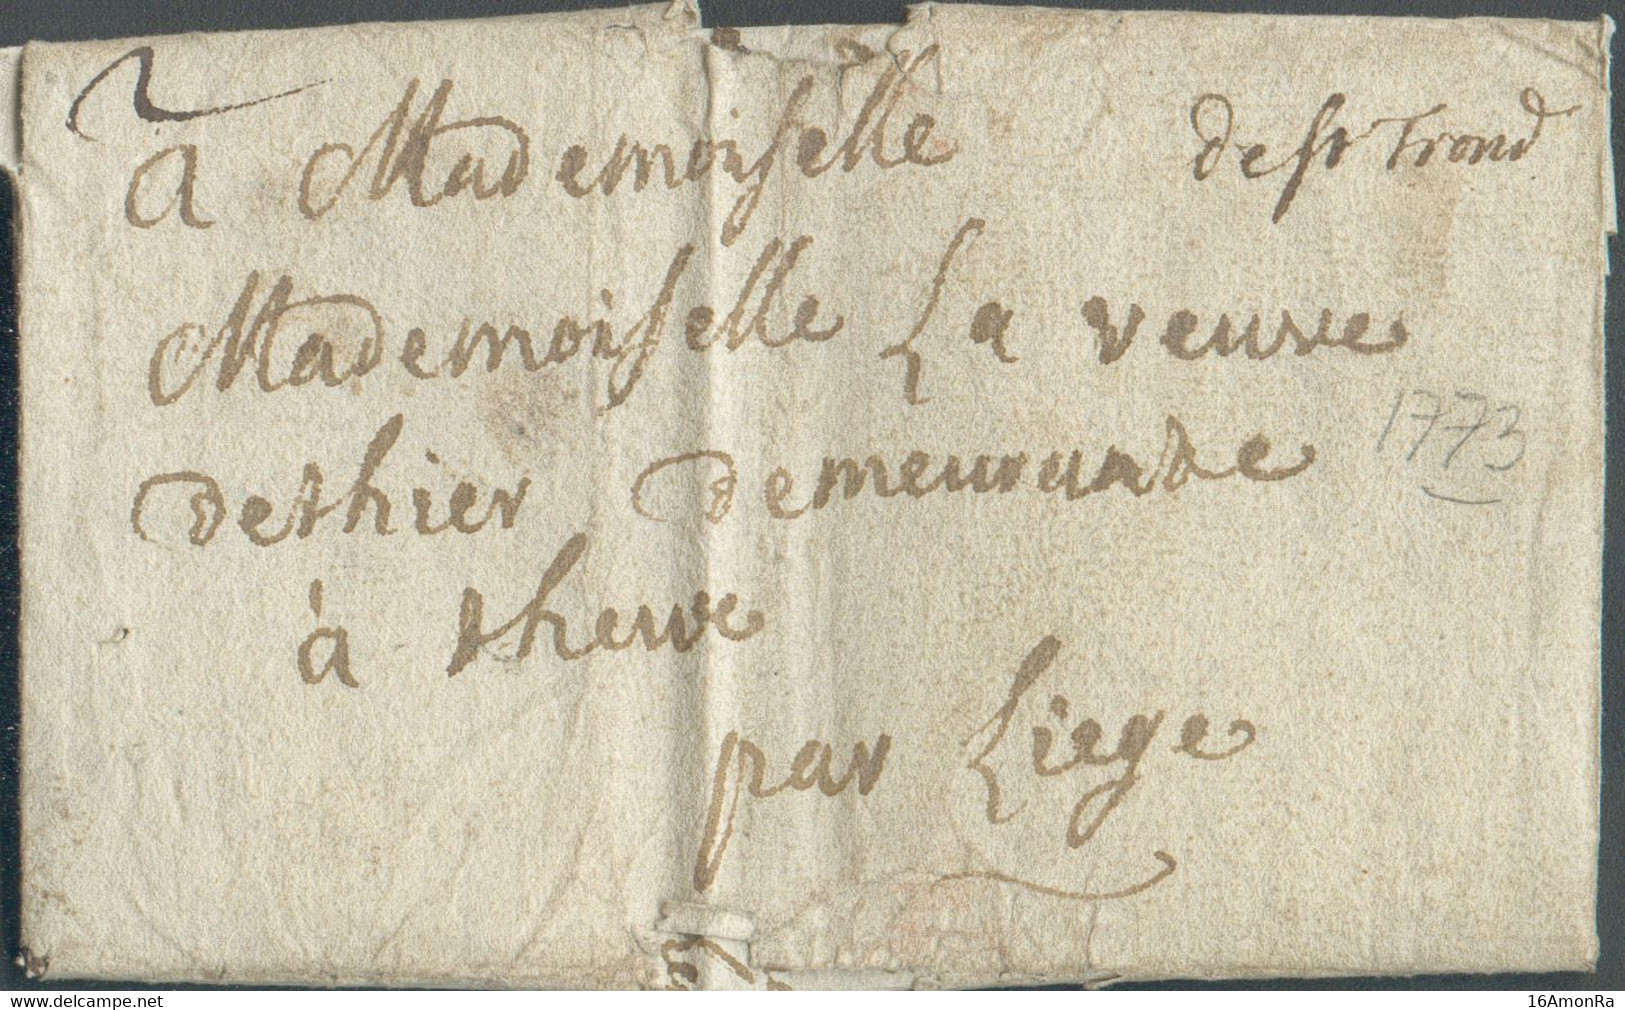 2
à Mademoiselle
de st Trond
Mademoiselle La veuve
1773
dethier demeurante
à therve
par Liege
www.delcampe.net
16AmonRa